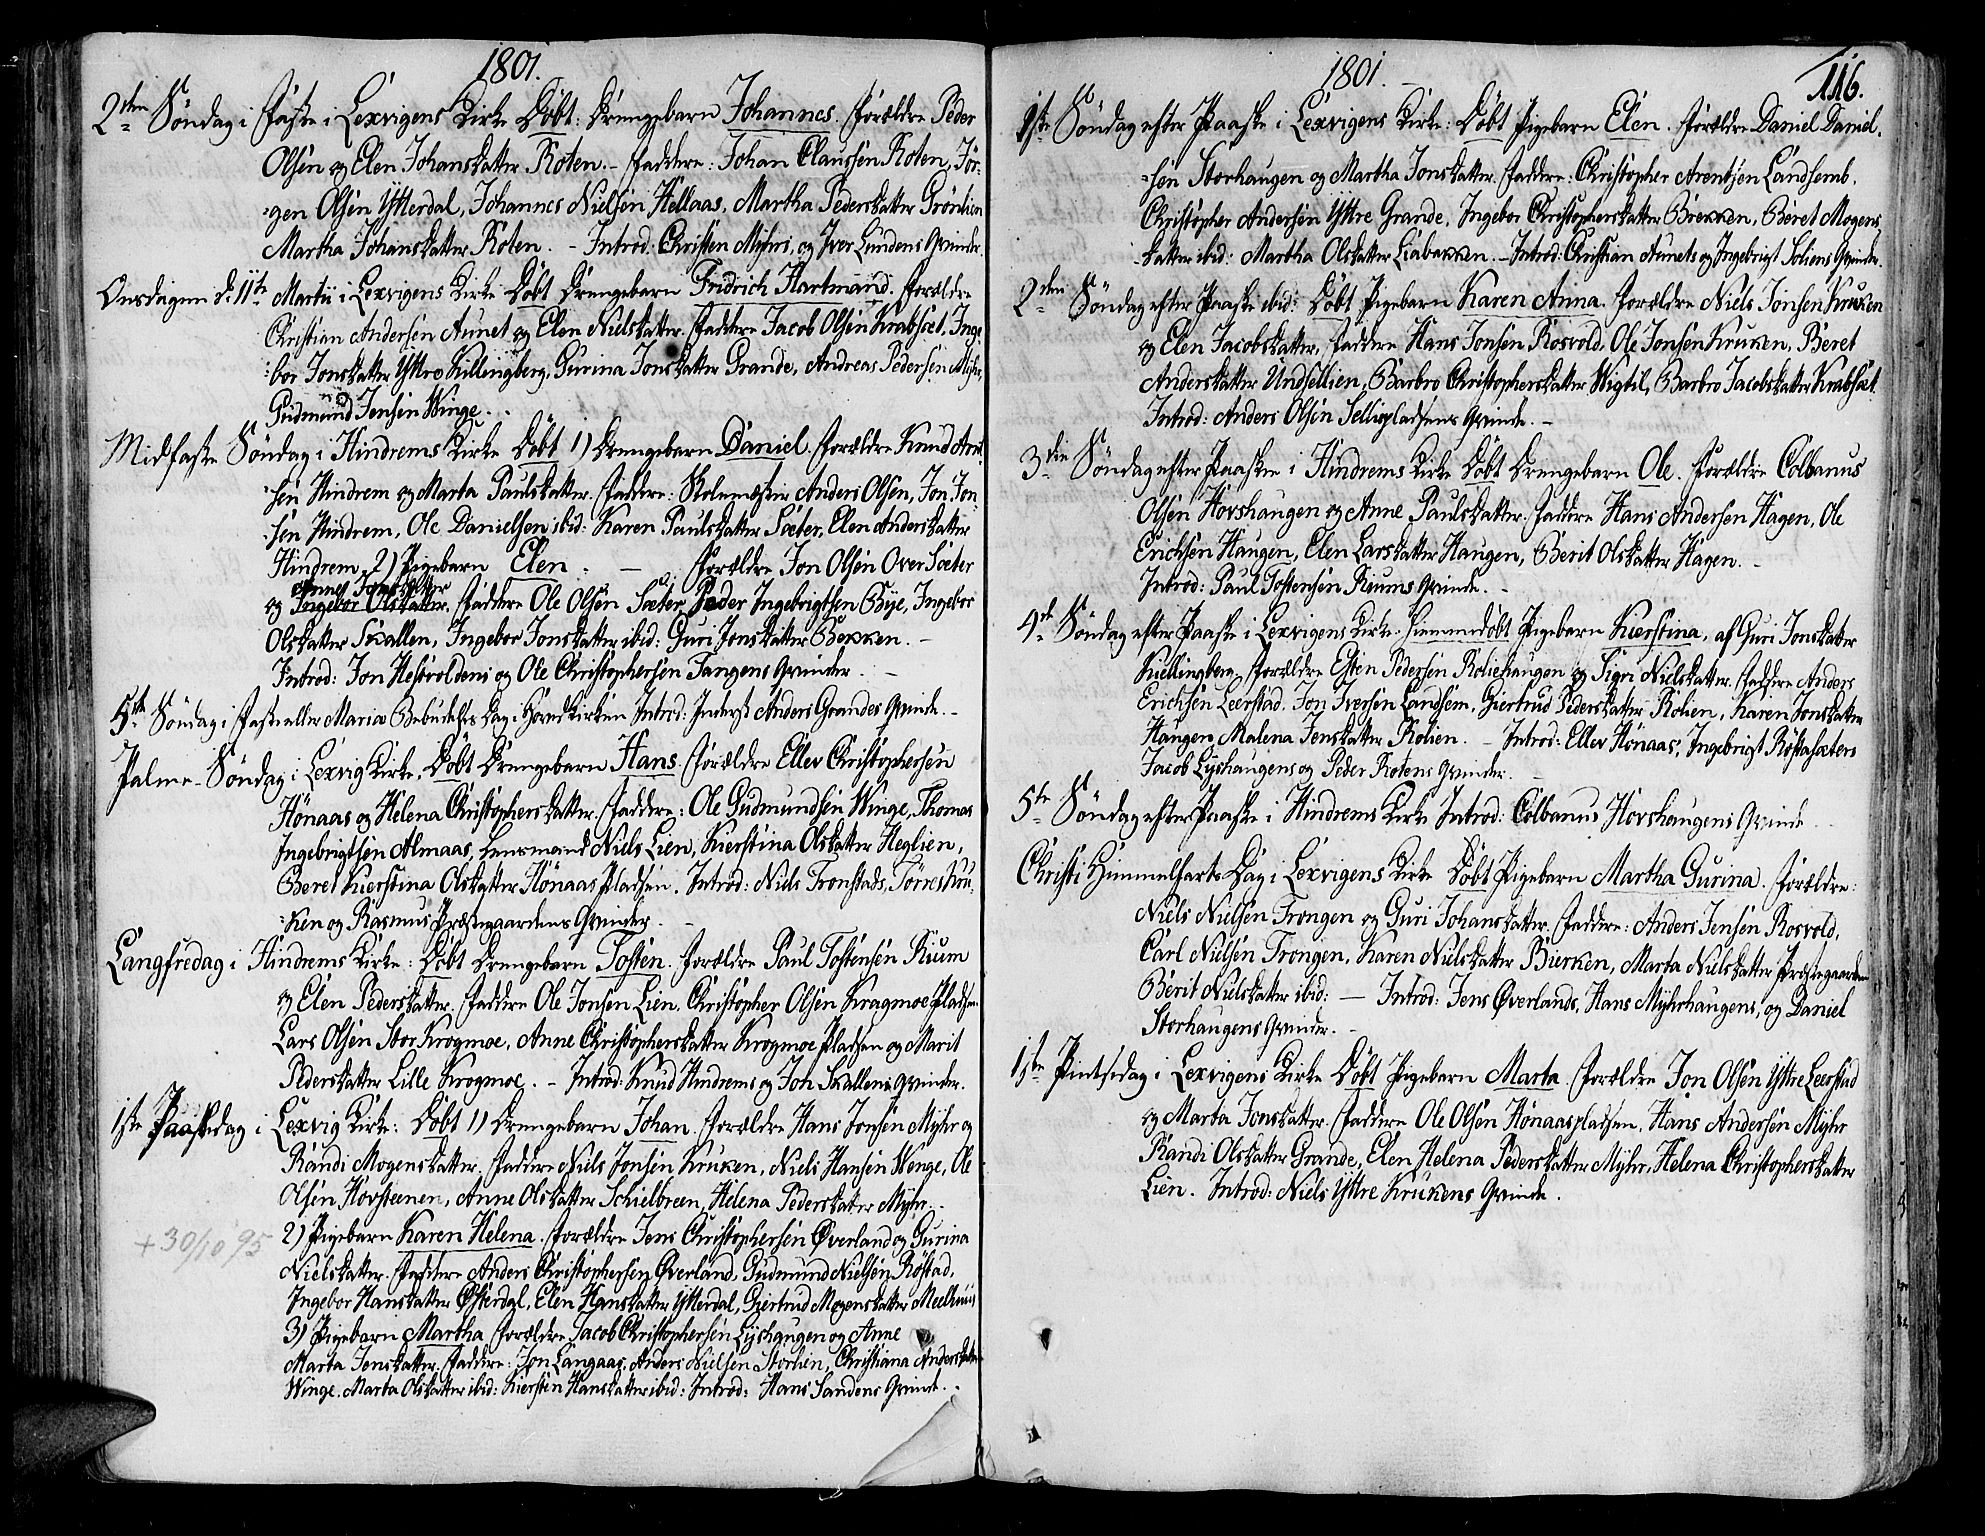 1801.
2den Søndag i Faste i Lexvigens Kirke Døbt: Drengebarn Johannes. Forældre Peder
Olsen og Elen Johansdatter Roten. - Faddere: Johan Claussen Roten, Jør-
gen Olsen Ytterdal, Johannes Nielsen Hellaas, Martha Pedersdatter Grønlien
Martha Johansdatter Roten. - Introd: Christen Myhrs, og Iver Lundens Qvinder.
Onsdagen d: 11te Martii i Lexvigens Kirke Døbt Drengebarn Fridrich Hartmand. Forældre
Christian Andersen Aunet og Elen Nielsdatter. Faddere Jacob Olsen Krabsæt, Inge-
bor Jonsdatter Yttre Killingberg, Gurina Jonsdatter Grande, Andreas Pedersen Myhr,
Gudmund Jensen Winge.
Midfaste Søndag i Hindrems Kirke Døbt 1) Drengebarn Daniel. Forældre Knud Arnt-
sen Hindrem og Marta Paulsdatter. Faddere: Skolemester Anders Olsen, Jon Jon-
sen Hindrem, Ole Danielsen ibid: Karen Paulsdatter Sæter, Elen Andersdatter
Hindrem. 2) Pigebarn Elen. - Forældre Jon Olsen Over Sæter
Anne Jonsdatter
og Ingebor Olsdatter. Faddere Ole Olsen Sæter, Peder Ingebrigtsen Bye, Ingebor
Olsdatter Skallen, Ingebor Jonsdatter ibid: Guri Jonsdatter Bekken. -
Introd: Jon Hestvoldens og Ole Christophersen Tangens Qvinder.
5te Søndag i Faste eller Mariæ Bebudelses Dag i Hoved Kirken Introd: Inderst Anders Grandes Qvinde. -
Palme-Søndag i Lexvig Kirke. Døbt Drengebarn Hans. Forældre Ellev Christophersen
Hønaas og Helena Christophersdatter. Faddere: Ole Gudmundsen Winge, Thomas
Ingebrigtsen Almaas, Lensmand Niels Lien, Kierstina Olsdatter Heglien,
Beret Kierstina Olsdatter Hønaas Pladsen. Introd: Niels Tronstads, Tørres Kru-
ken og Rasmus Præstegaardens Qvinder.
Langfredag i Hindrems Kirke: Døbt Drengebarn Tosten. Forældre Paul Tostensen Rium
og Elen Pedersdatter. Faddere Ole Jonsen Lien, Christopher Olsen Kragmoe Pladsen
Lars Olsen Stor Krogmoe, Anne Christophersdatter Krogmoe Pladsen og Marit
Pedersdatter Lille Krogmoe. - Introd: Knud Hindrems og Jon Skallens Qvinder.
1ste Paaskedag i Lexvig Kirke: Døbt 1) Drengebarn Johan. Forældre Hans Jonsen Myhr og
Randi Mogensdatter. Faddere Niels Jonsen Kruken, Niels Hansen Wenge, Ole
Olsen Hovsteenen, Anne Olsdatter Schielbreen, Helena Pedersdatter Myhr. -
2) Pigebarn Karen Helena. Forældre Jens Christophersen Øverland og Gurina
+ 30/10 95
Nielsdatter. Faddere Anders Christophersen Øverland, Gudmund Nielsen Røstad,
Ingebor Hansdatter Østerdal, Elen Hansdatter Ytterdal, Giertrud Mogensdatter Meelhuus
3) Pigebarn Martha Forældre Jacob Christophersen Lyshaugen og Anne
Marta Jensdatter. Faddere: Jon Langaas, Anders Nielsen Storlien, Christiana Andersdatter
Winge. Marta Olsdatter ibid: Kiersten Hansdatter ibid: Introd: Hans Sandens Qvinde.
1801.
116.
1ste Søndag efter Paaske i Lexvigens Kirke: Døbt Pigebarn Elen. Forældre Daniel Daniel-
sen Storhaugen og Martha Jonsdatter. Faddere: Christopher Arentsen Landsemb,
Christopher Andersen Yttre Grande, Ingebor Christophersdatter Brekken, Beret Mogens-
datter ibid: Martha Olsdatter Liabakken. - Introd: Christian Aunets og Ingebrigt Soliens Qvinder.
2den Søndag efter Paaske ibid: Døbt Pigebarn Karen Anna. Forældre Niels Jonsen Kruken
og Elen Jacobsdatter, Faddere Hans Jonsen Rosvold, Ole Jonsen Kruken, Beret
Andersdatter Undsellien, Barbro Christophersdatter Wigtil, Barbro Jacobsdatter Krabsæt.
Introd: Anders Olsen Sellispladsens Qvinde. -
3die Søndag efter Paaske i Hindrems Kirke Døbt Drengebarn Ole. Forældre Colbanus
Olsen Hovshaugen og Anne Paulsdatter. Faddere Hans Andersen Hagen, Ole
Erichsen Haugen, Elen Larsdatter Haugen, Berit Olsdatter Hagen. -
Introd: Paul Tostensen Riums Qvinde. -
4de Søndag efter Paaske i Lexvigens Kirke. Hiemmedøbt Pigebarn Kierstina, af Guri Jonsdatter
Kiellingberg. Forældre Esten Pedersen Roliehaugen og Sigri Nielsdatter. Faddere Anders
Erichsen Leerstad, Jon Iversen Landsem, Giertrud Pedersdatter Rolien, Karen Jonsdatter
Haugen, Malena Jensdatter Rolien. - Introd: Ellev Hønaas', Ingebrigt Røstasæters
Jacob Lyshaugens og Peder Rotens Qvinder. -
5te Søndag efter Paaske i Hindrems Kirke Introd: Colbanus Hovshaugens Qvinde
Christi Himmelfarts Dag i Lexvigens Kirke Døbt Pigebarn Martha Gurina. Forældre:
Niels Nielsen Trongen og Guri Johansdatter. Faddere: Anders Jensen Rosvold,
Carl Nielsen Trongen, Karen Nielsdatter Bierken, Marta Nielsdatter Præstegaarden
Berit Nielsdatter ibid: - Introd: Jens Øverlands, Hans Myhrhaugens, og Daniel
Storhaugens Qvinder. -
1ste Pintsedag i Lexvigens Kirke Døbt Pigebarn Marta. Forældre Jon Olsen Yttre Leerstad
og Marta Jonsdatter. Faddere Ole Olsen Hønaaspladsen, Hans Andersen Myhr
Randi Olsdatter Grande, Elen Helena Pedersdatter Myhr, Helena Christophersdatter
Lien. Introd: Niels Yttre Krukens Qvinde.